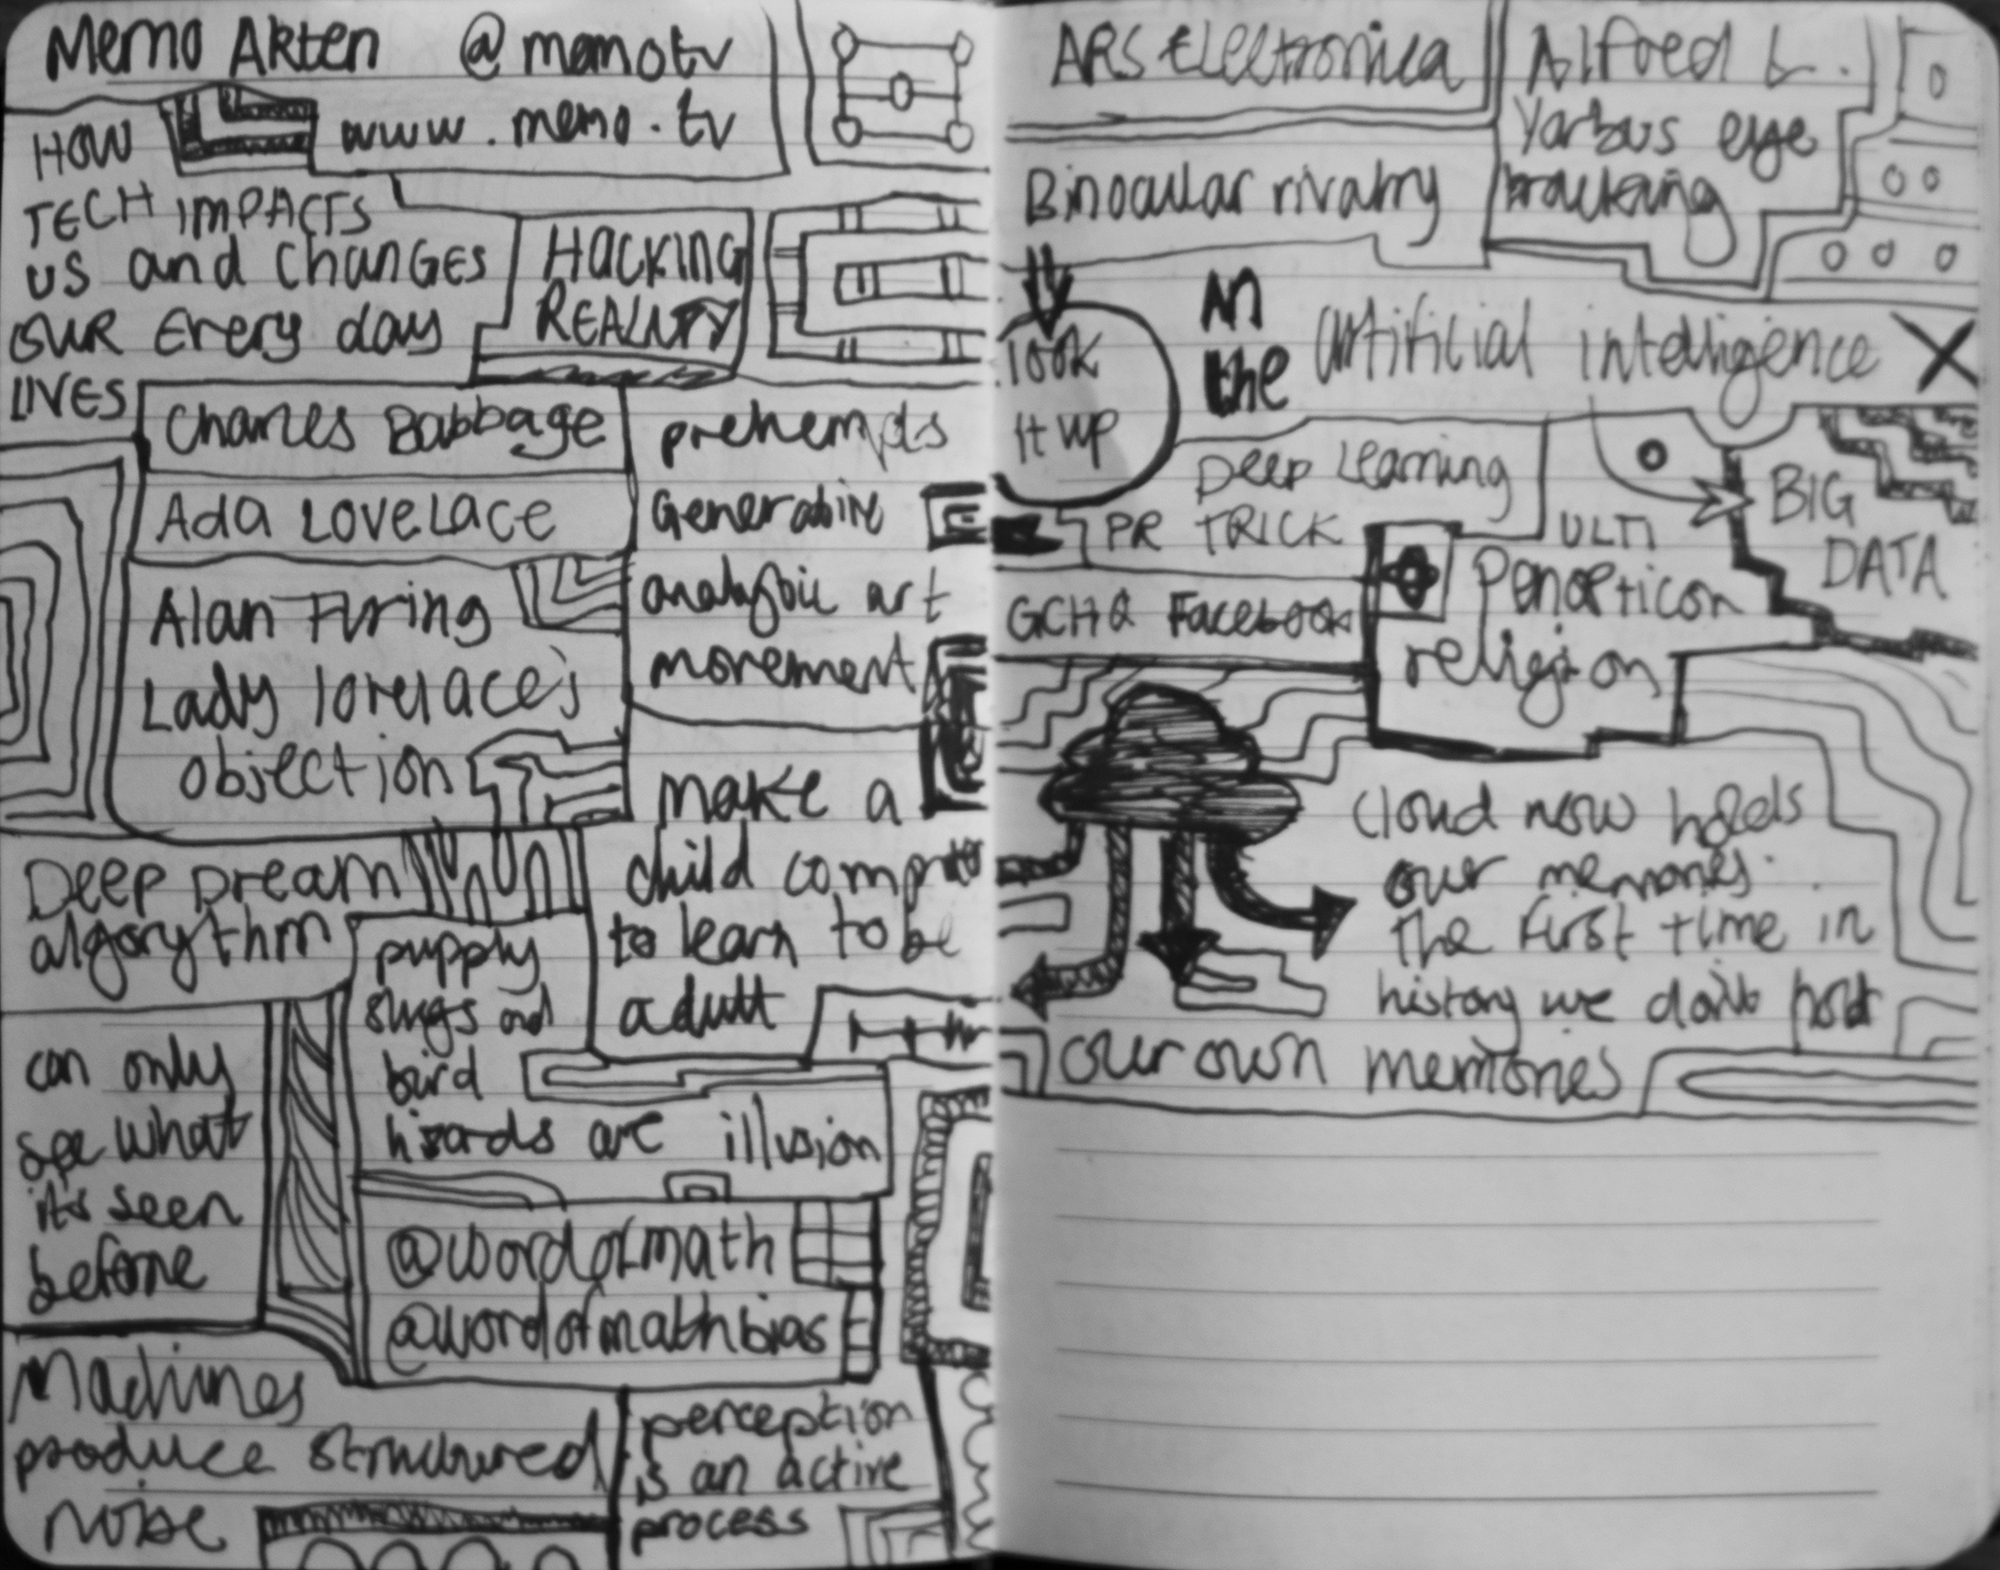 Memo Akten @memotv
www.memo.tv
HOW
TECH IMPACTS
US and changes
OUR Every day
LIVES
HACKING
REALITY
Charles Babbage
Ada Lovelace
Alan Turing
Lady lovelace's
objection
prehempts
Generative
analytic art
movement
make a
child computer
to learn to be
adult
Deep Dream
algorythm
puppy
slugs and
bird
lizards are illusion
can only
see what
its seen
before
@wordofmath
@wordofmathbias
Machines
produce structured
noise
perception
is an active
process
ARS Electronica
Alfred L.
Yarbus eye
tracking
Binocular rivalry
look
it up
An
the
artificial intelligence
X
Deep Learning
PR TRICK
GCHQ Facebook
ULTI
Penopticon
religion
BIG
DATA
Cloud now holds
our memories.
The first time in
history we don't hold
our own memories